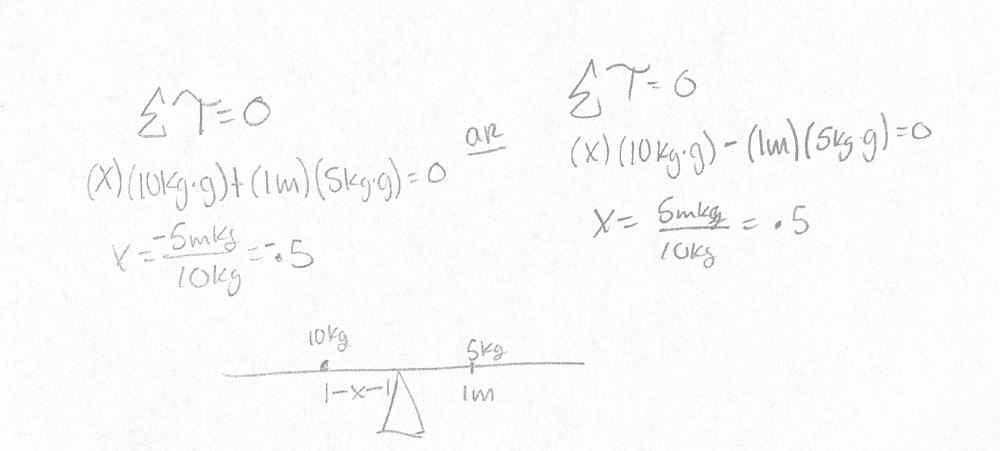 Στ=0
(x)(10kg·g)+(1m)(5kg·g)=0
x = -5mkg/10kg = -.5
or
Στ=0
(x)(10kg·g)-(1m)(5kg·g)=0
x = 5mkg/10kg = .5
10kg
5kg
|-x-|
1m